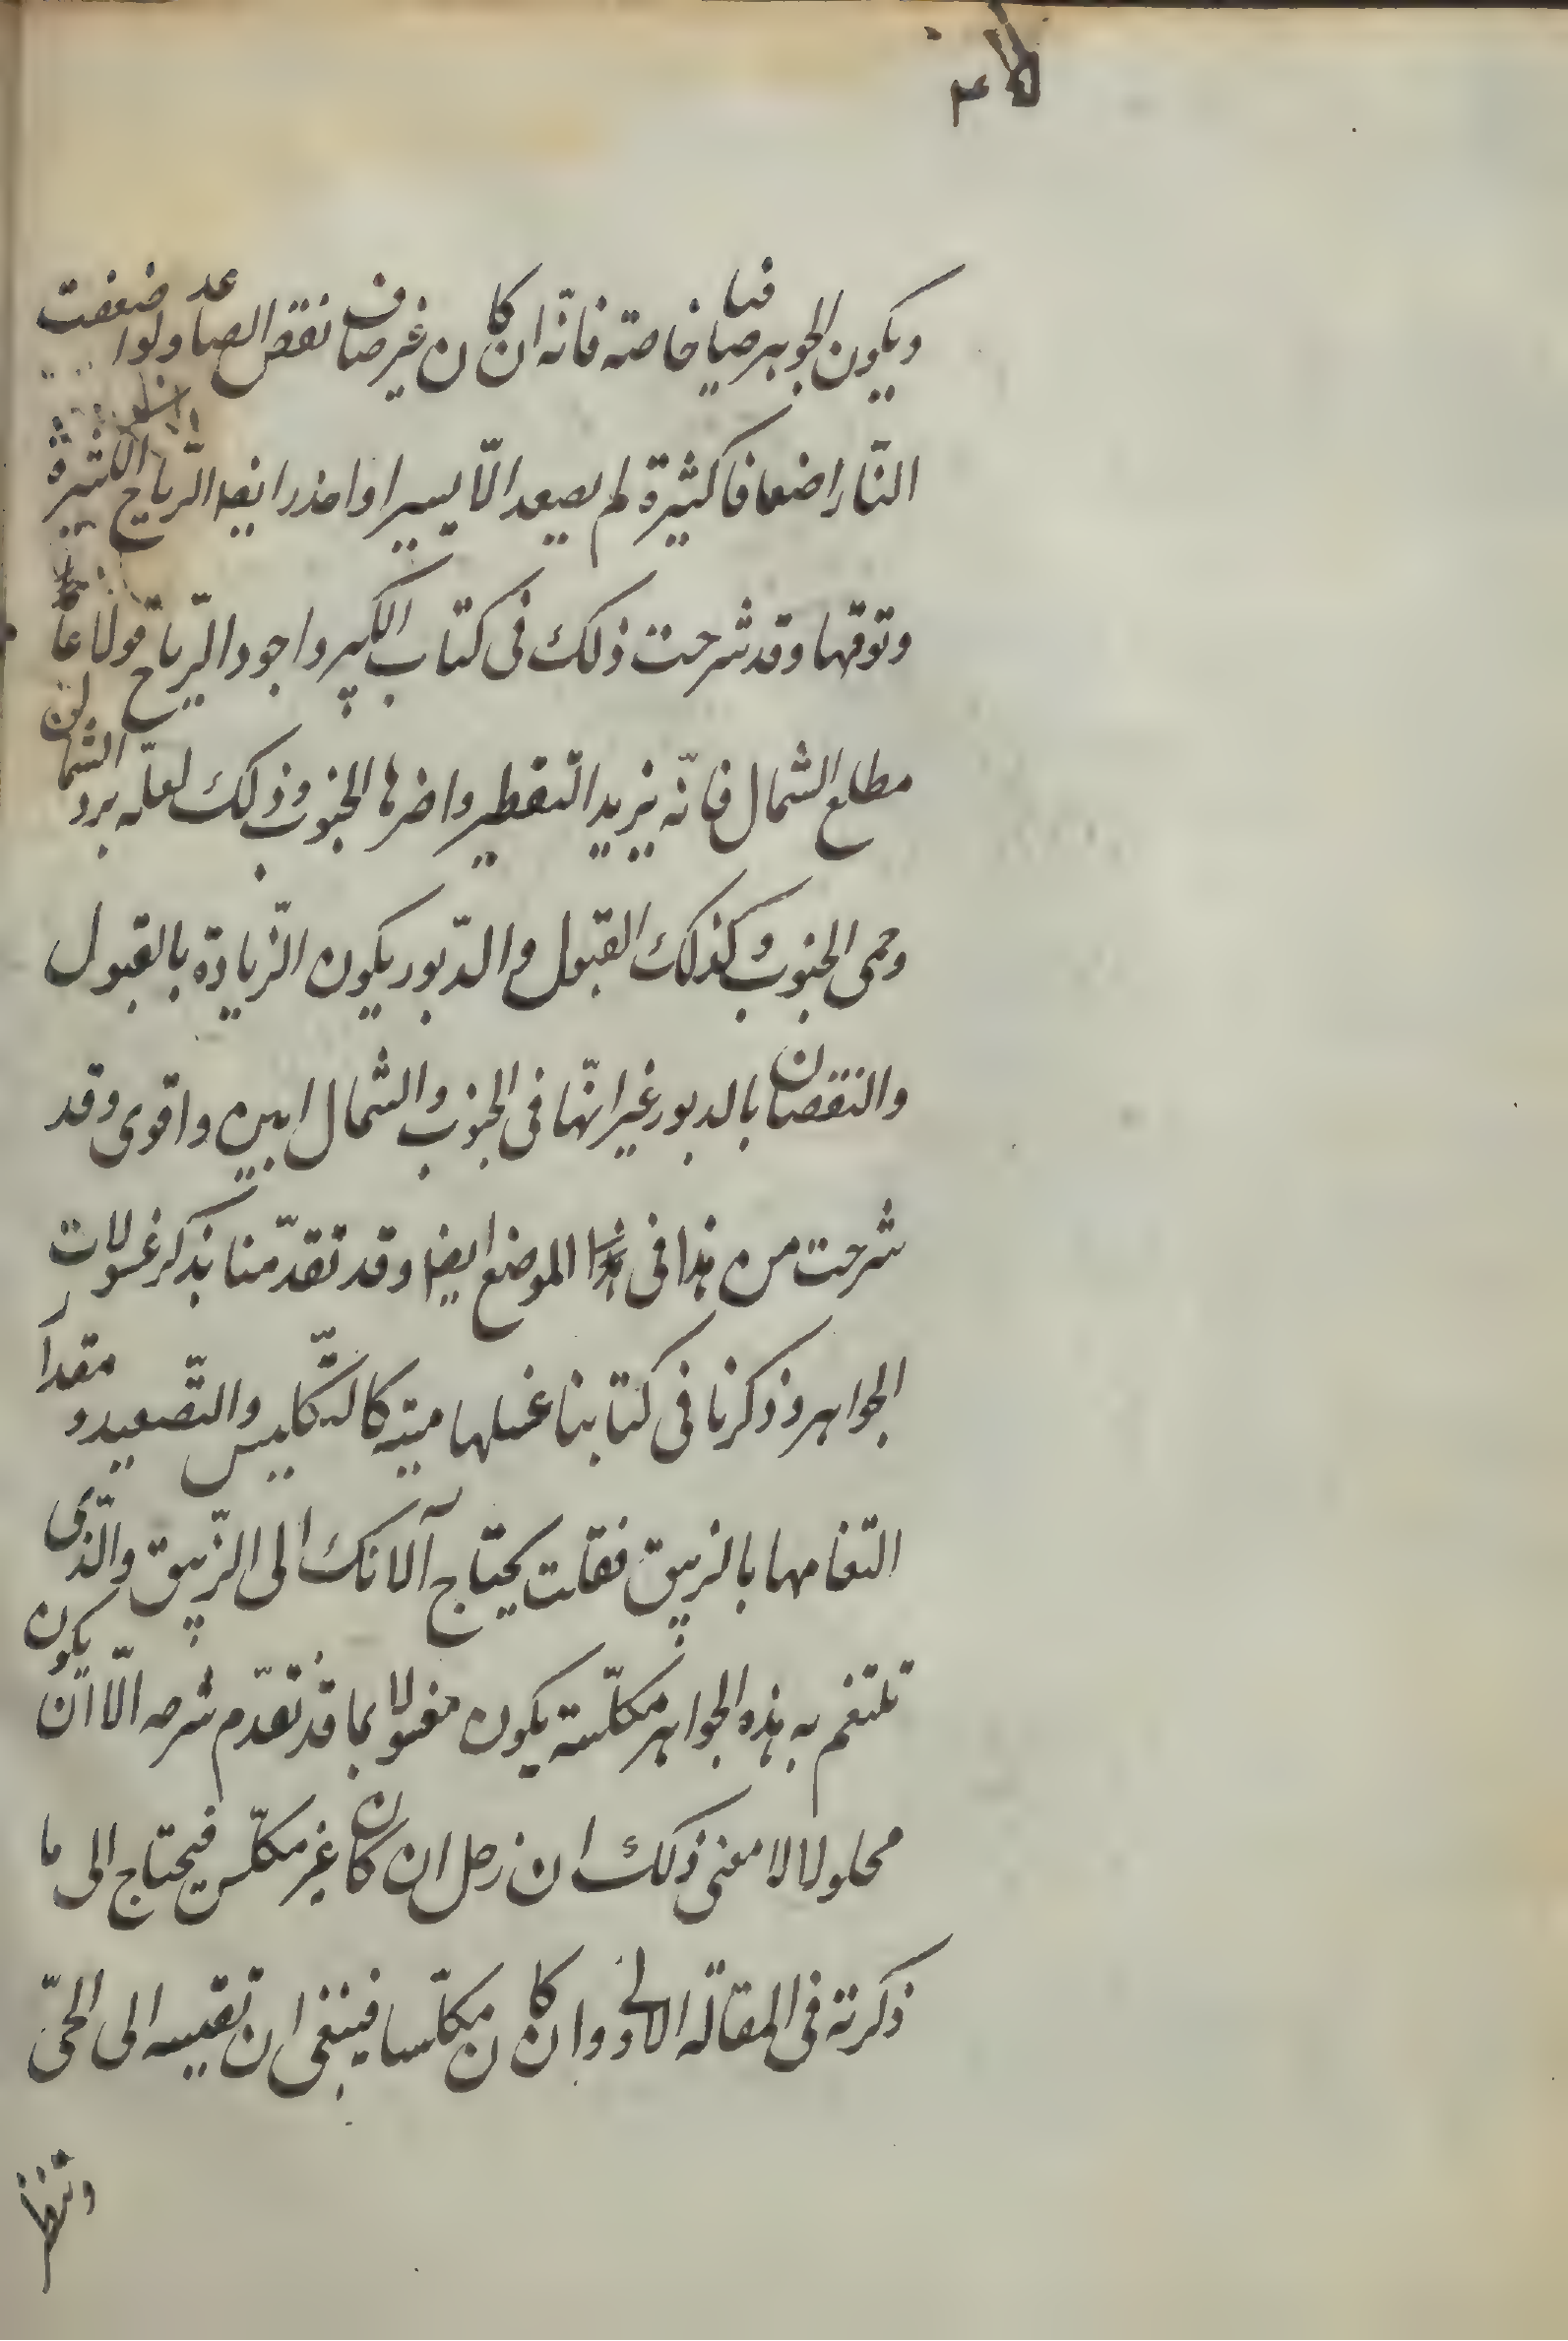 ويكون الجوهر صافيا خاصته فانّه ان كان غير صاف نقص الصاعد ولو اضعفت
النّار اضعافا كثيرة لم يصعد الّا يسيرا واحذر ايضا الرّياح الكثيرة
وتوقها وقد شرحت ذلك فى كتاب الكبير واجود الرّياح قولا عا
مطلع الشمال فانّه يزيد التقطير واضرها الجنوب وذلك لعلّه برد الشمال
وحمى الجنوب وكذلك القبول والدّبور يكون الزّيادة بالقبول
والنقصان بالدبور غير انّها فى الجنوب والشمال ابين واقوى وقد
شرحت من هذا فى هذا الموضع ايضا وقد تقدّمنا بذكر غسولات
الجواهر وذكرنا فى كتابنا غسلها ميتة كالتّكليس والتّصعيد و مقدار
التغامها بالزيبق فقلت يحتاج آلانك الى الزّيبق والّذى
تلتغم به هذه الجواهر مكلّسة يكون مغسولا بما قد تقدّم شرحه الّا ان يكون
محلولا لا معنى ذلك ان زحل ان كان غير مكلّس فيحتاج الى ما
ذكرته فى المقالة الاولى وان كان مكلّسا فينبغى ان تقيسه الى الحىّ
وتنظر